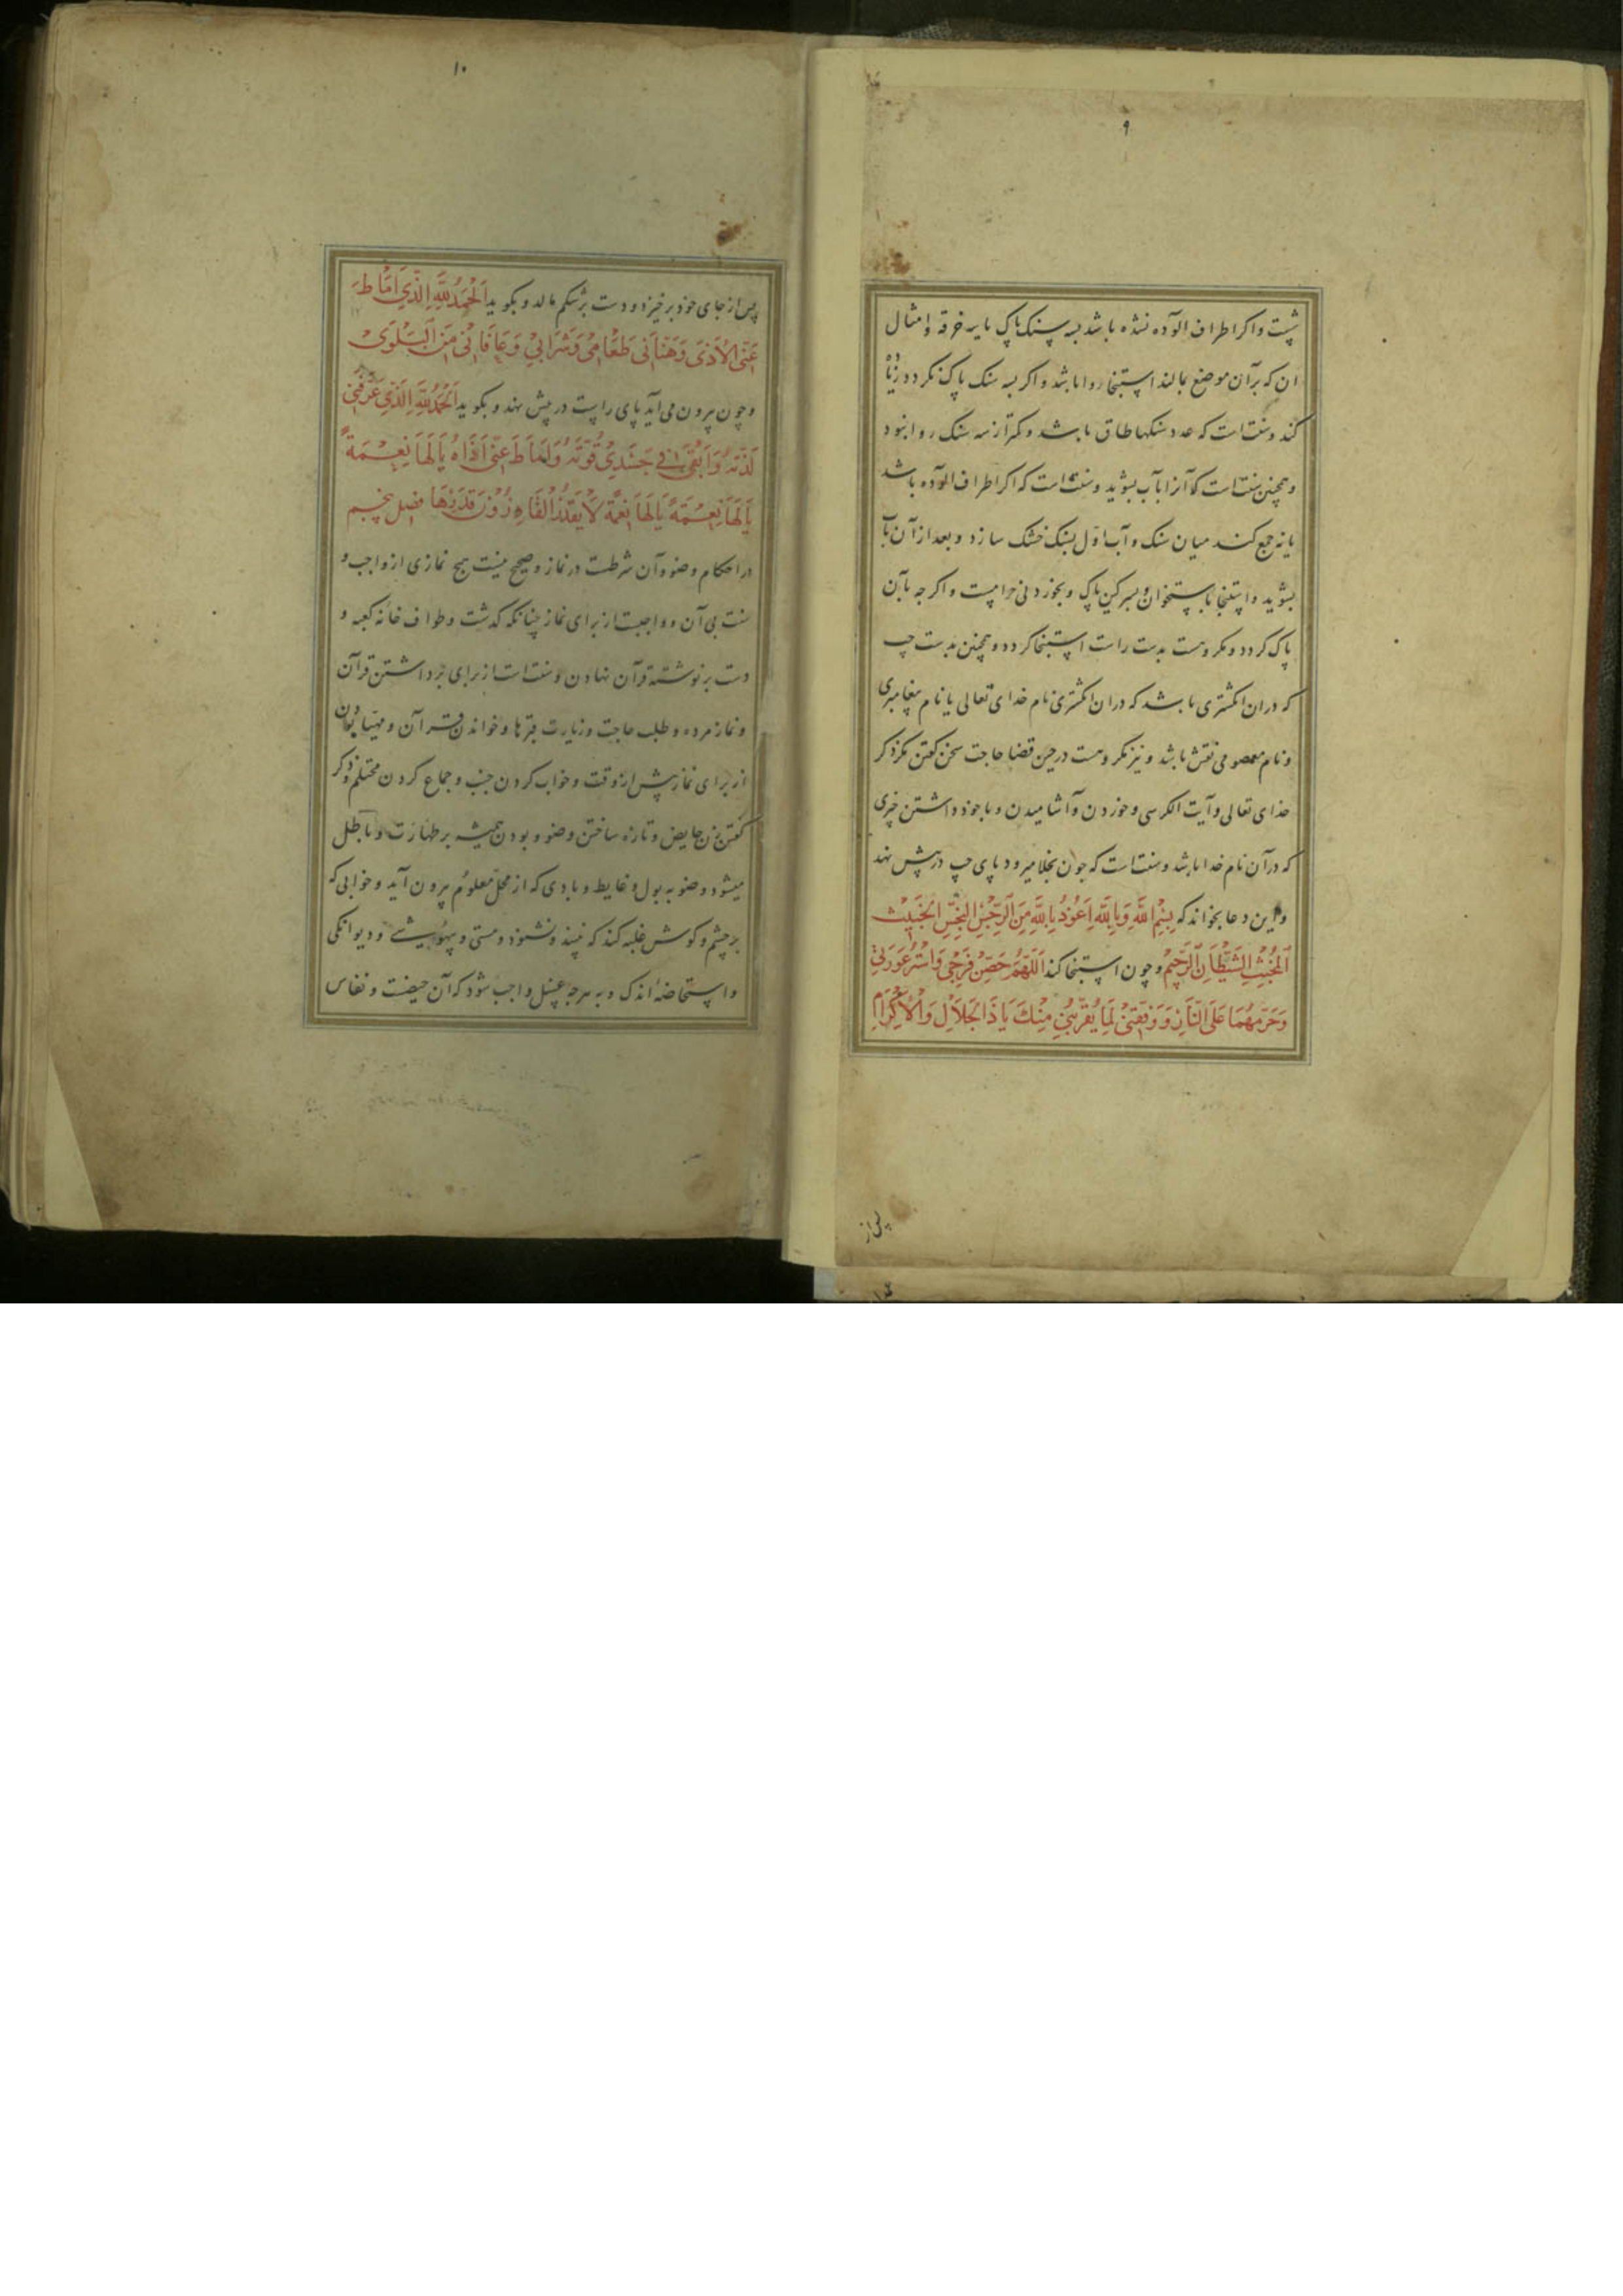 ۹
شست واکر اطراف الوده نشده باشد بسه سنک پاک یا بسه خرقه و امثال
ان که بر آن موضع بمالند استنجا روا باشد واکر بسه سنک پاک نکردد زیاده
کند وسنت است که عدد سنکها طاق باشد و کمتر از سه سنک روا نبود
و همچنین سنت است که آنرا بآب بشوید وسنت است که اکر اطراف الوده باشد
یا نه جمع کند میان سنک و آب اول بسنک خشک سازد و بعد از آن بآب
بشوید و استنجا باستخوان و سرکین پاک و بخوردنی حرامست و اکرچه بآن
پاک کردد و مکروهست بدست راست استنجا کردد و همچنین بدست چپ
که در ان انکشتری باشد که در ان انکشتری نام خدای تعالی یا نام پیغامبری
و نام معصومی نقش باشد و نیز مکروهست در حین قضا حاجت سخن کفتن مکر ذکر
خدای تعالی و آیت الکرسی و خوردن و آشامیدن و با خود داشتن چیزی
که در آن نام خدا باشد وسنت است که چون بخلا میرود پای چپ در پیش نهد
و این دعا بخواند که بِسْمِ اللَّهِ وَبِاللَّهِ اَعُوذُ بِاللَّهِ مِنَ الرِّجْسِ النَّجِسِ الْخَبِيثِ
الْمُخْبِثِ الشَّيْطَانِ الرَّجِيمِ و چون استنجا کند اَللّٰهُمَّ حَصِّنْ فَرْجِي وَاسْتُرْ عَوْرَتِي
وَحَرِّمْهُمَا عَلَى النَّارِ وَوَفِّقْنِي لِمَا يُقَرِّبُنِي مِنْكَ يَا ذَا الْجَلَالِ وَالْاِكْرَامِ
پس از
۱۰
پس از جای خود برخیزد و دست بر شکم مالد و بکوید اَلْحَمْدُ لِلَّهِ الَّذِي اَمَاطَ
عَنِّي الْاَذَى وَهَنَّأَنِي طَعَامِي وَشَرَابِي وَعَافَانِي مِنَ الْبَلْوَى
و چون بیرون می آید پای راست در پیش نهد و بکوید اَلْحَمْدُ لِلَّهِ الَّذِي عَرَّفَنِي
لَذَّتَهُ وَاَبْقَى فِي جَسَدِي قُوَّتَهُ وَاَمَاطَ عَنِّي اَذَاهُ يَا لَهَا نِعْمَةً
يَا لَهَا نِعْمَةً يَا لَهَا نِعْمَةً لَا يَقْدِرُ الْقَادِرُونَ قَدْرَهَا فصل پنجم
در احکام وضو و آن شرطست در نماز و صحیح نیست هیچ نمازی از واجب و
سنت بی آن و واجبست از برای نماز چنانکه کذشت و طواف خانه کعبه و
دست بر نوشته قرآن نهادن و سنت است از برای برداشتن قرآن
و نماز مرده و طلب حاجت و زیارت قبرها و خواندن قرآن و مهیا بودن
از برای نماز پیش از وقت و خواب کردن جنب و جماع کردن محتلم و ذکر
کفتن زن حایض و تازه ساختن وضو و بودن همیشه بر طهارت و باطل
میشود وضو به بول و غایط و بادی که از محل معلوم بیرون آید و خوابی که
بر چشم و کوش غلبه کند که نبیند و نشنود و مستی و بیهوشی و دیوانکی
و استحاضهٔ اندک و به هرچه غسل واجب شود که آن حیضت و نفاس